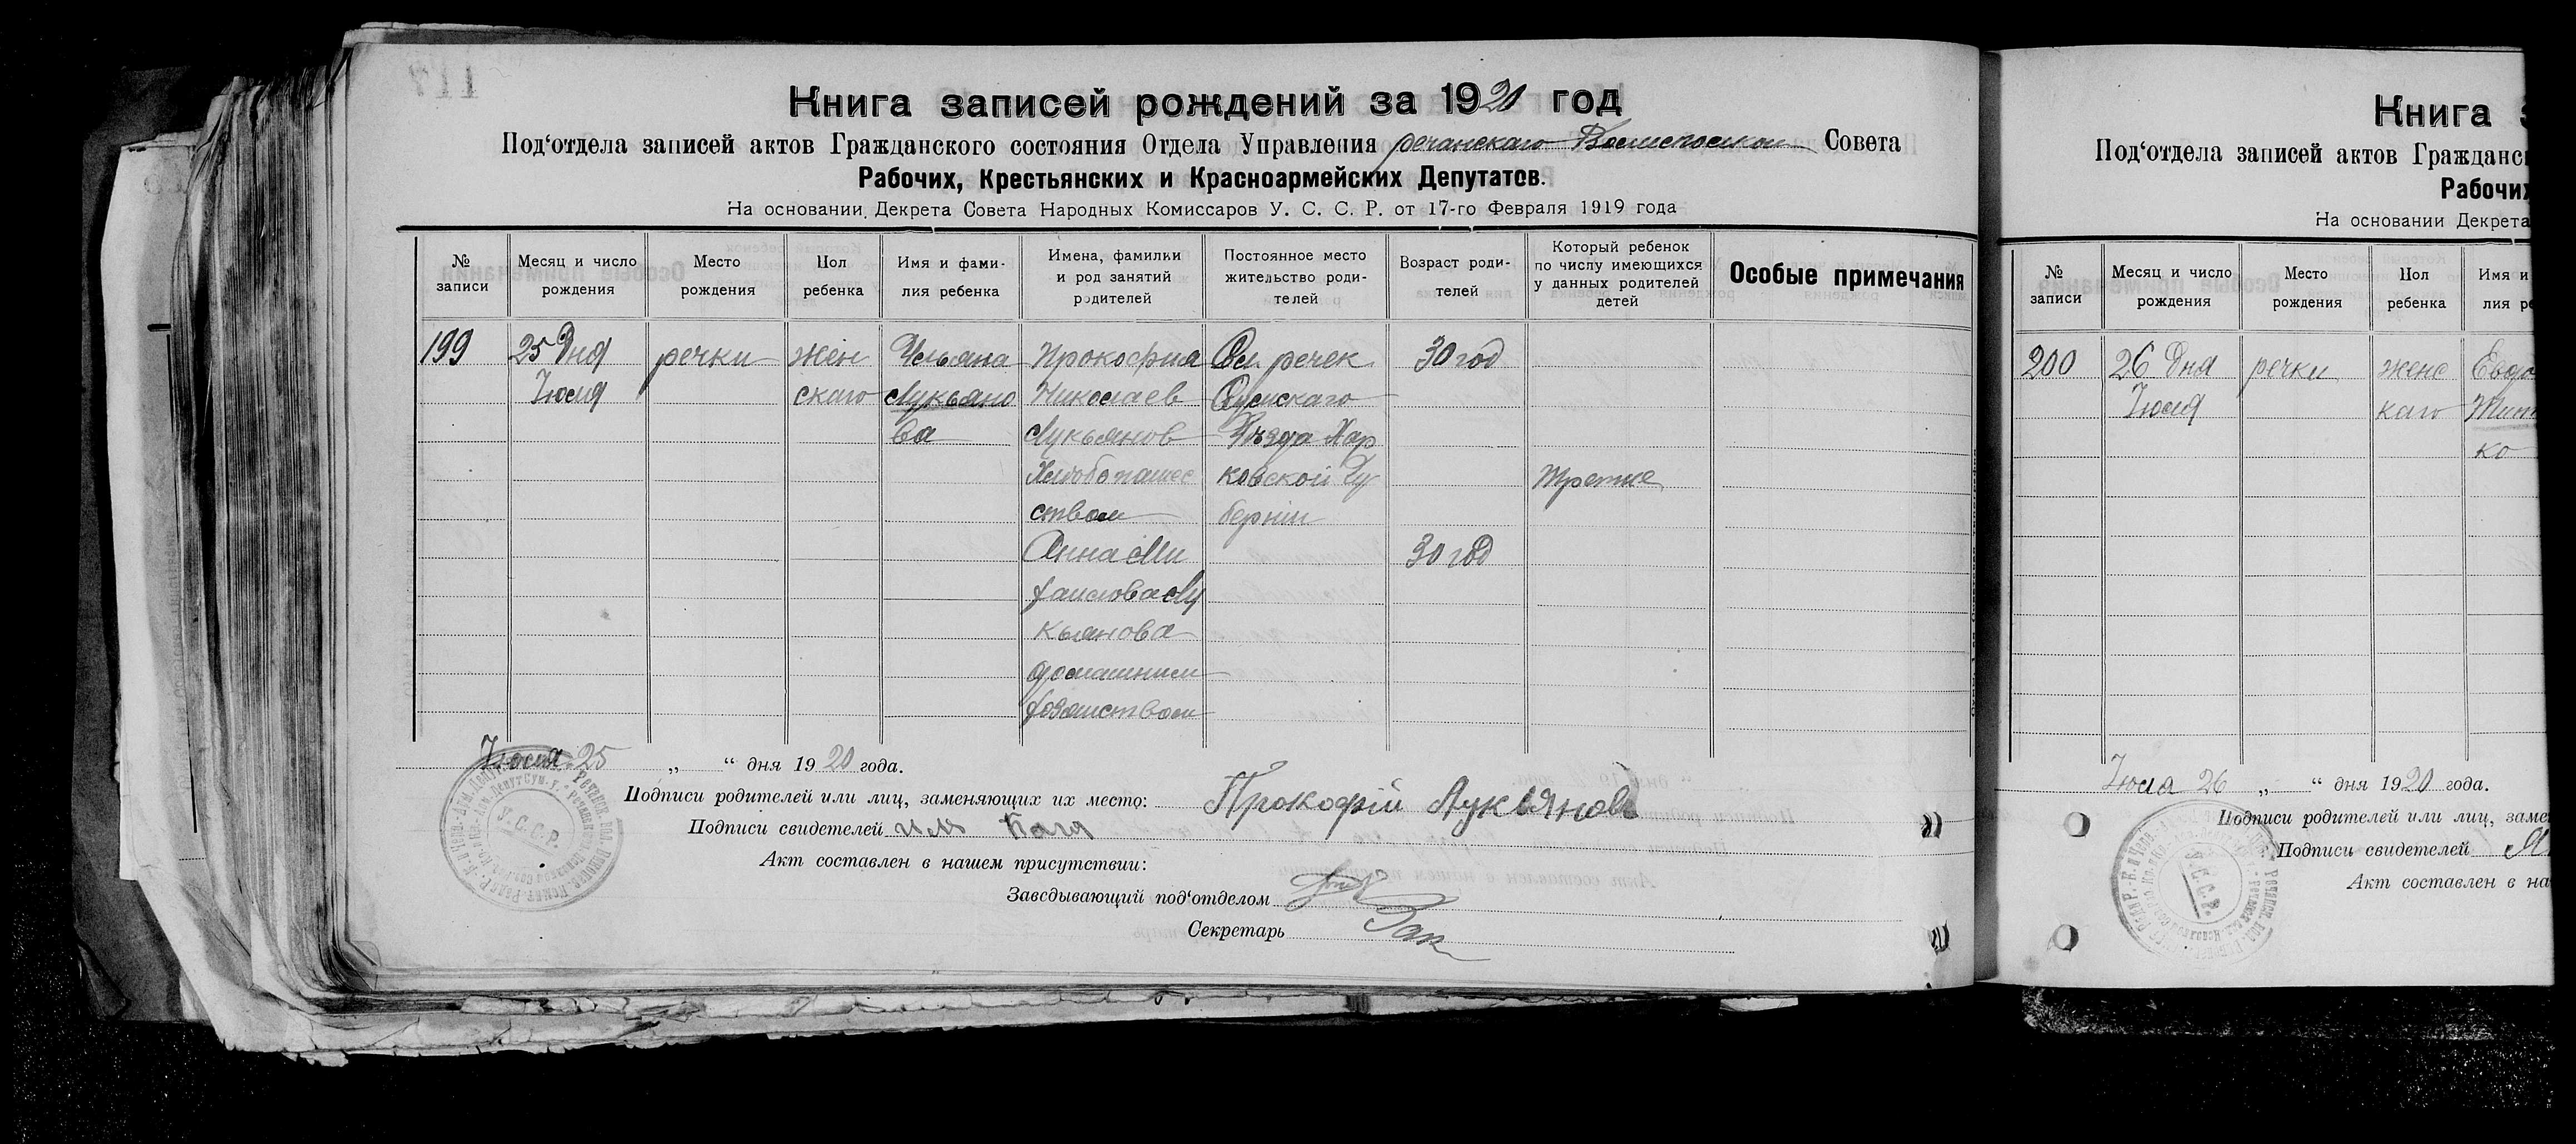 Книга записей рождений за 1920 год
Под‘отдела записей актов Гражданского состояния Отдела Управления речанскаго Совета
Рабочих, Крестьянских и Красноармейских Депутатов.
На основании Декрета Совета Народных Комиссаров У. С. С. Р. от 17-го Февраля 1919 года
№ записи
Месяц и число рождения
Место рождения
Пол ребенка
Имя и фами-
лия ребенка
Имена, фамилии
и род занятий
родителей
Постоянное место
жительство роди-
телей
Возраст роди-
телей
Который ребенок
по числу имеющихся
у данных родителей
детей
Особые примечания
199
25 Дня
Июля
речки
жен
скаго
Ульяна
Лукьяно
ва
Прокофия
Николаев
Лукьянов
Хлебопашес
ством
Анна Ми
хаилова Лу
кьянова
домашним
хозяиством
Сел речек
Сумскаго
Уезда Хар
ковской Гу
бернии
30 год
30 год
третие
Июля 25 „ “ дня 1920 года.
Подписи родителей или лиц, заменяющих их место: Прокофій Лукьяновъ
Подписи свидетелей
Акт составлен в нашем присутствии:
Заведывающий под‘отделом
Секретарь
У.С.С.Р.
Книга
Под‘отдела записей актов Гражданс
Рабочих
На основании Декрета
№ записи
Месяц и число рождения
Место рождения
Пол ребенка
Имя и
лия ре
200
26 Дня
Июля
речки
женс
каго
Евдо
ко
Июля 26 „ “ дня 1920 года.
Подписи родителей или лиц, заме
Подписи свидетелей
Акт составлен в на
У.С.С.Р.